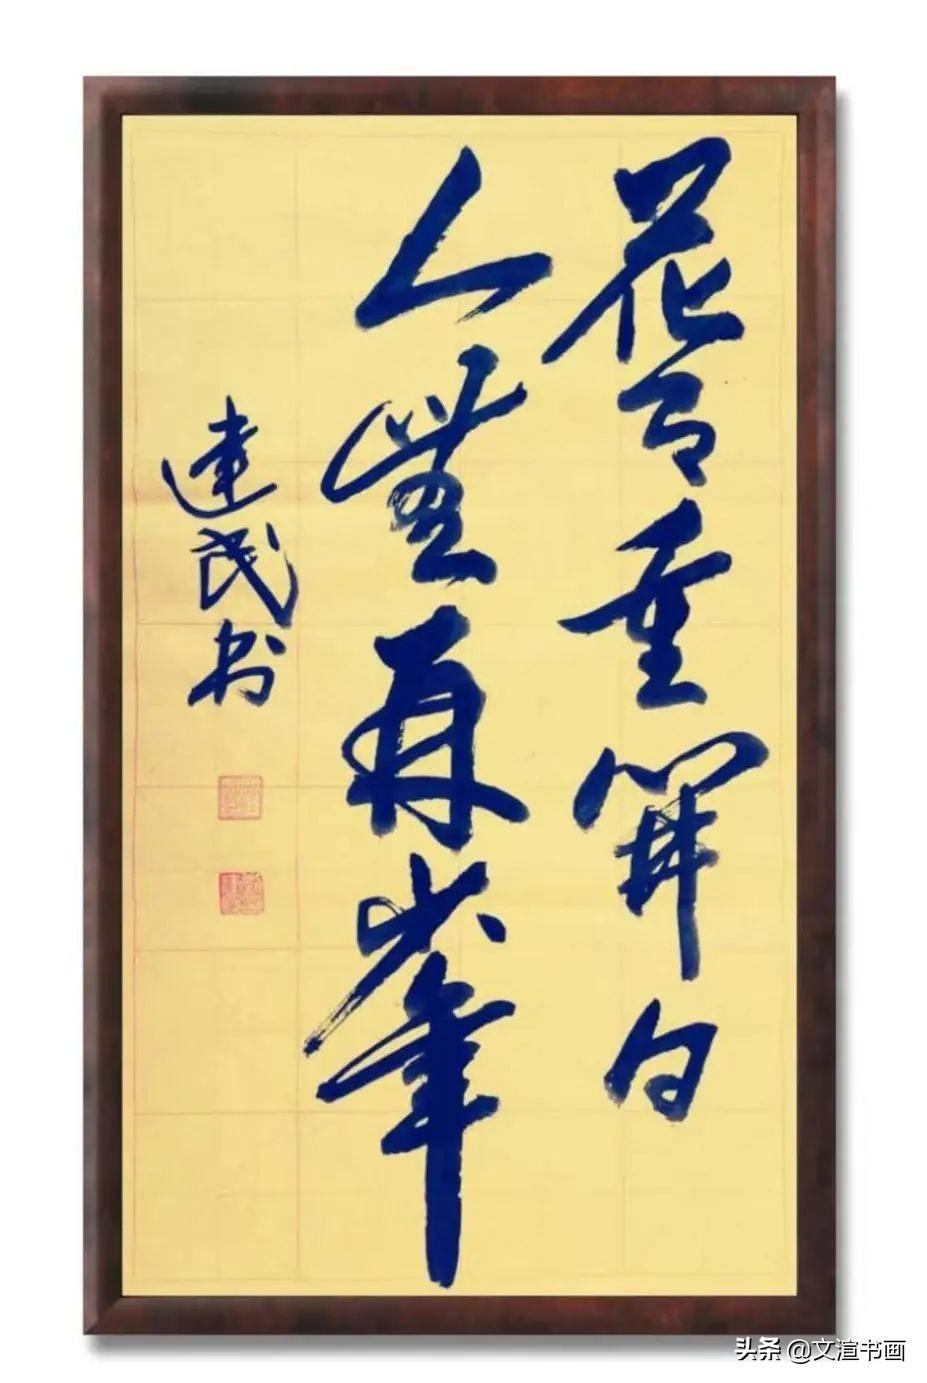 花有重開日
人無再少年
建民书
头条 @文渲书画